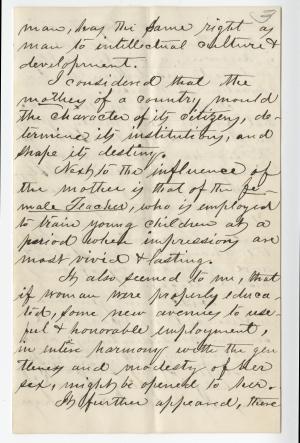 3
man, has the same right as
man to intellectual culture &
development.
I considered that the
mothers of a country, mould
the character of its Citizens, de-
termine its institutions, and
shape its destiny.
Next to the influence of
the mother is that of the fe-
male Teacher, who is employed
to train young children at a
period when impressions are
most vivid & lasting.
It also seemed to me, that
if woman were properly educa-
ted, some new avenues to use-
ful & honorable employment,
in entire harmony with the gen-
tleness and modesty of her
sex, might be opened to her.
It further appeared, there